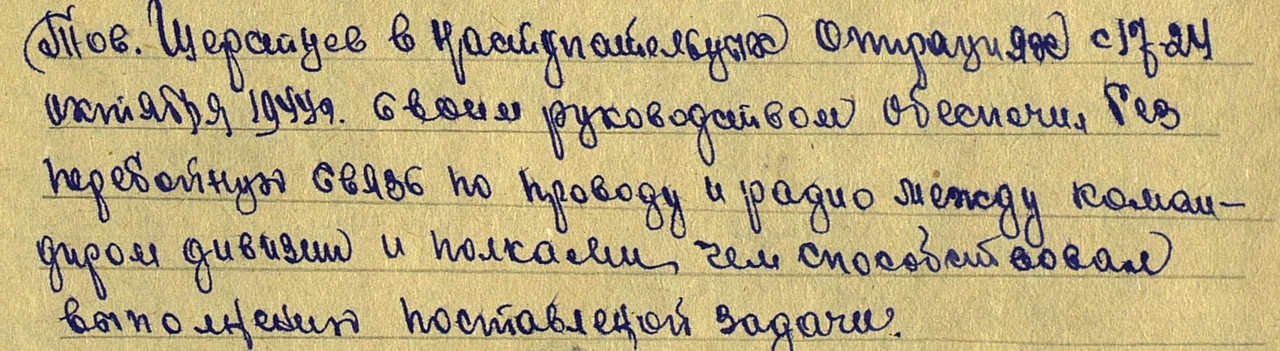 Тов. Щербинцев в наступательных операциях с 17-24
октября 1944г. своим руководством обеспечил бес
перебойную связь по проводу и радио между коман-
диром дивизии и полками, чем способствовал
выполнению поставленой задачи.